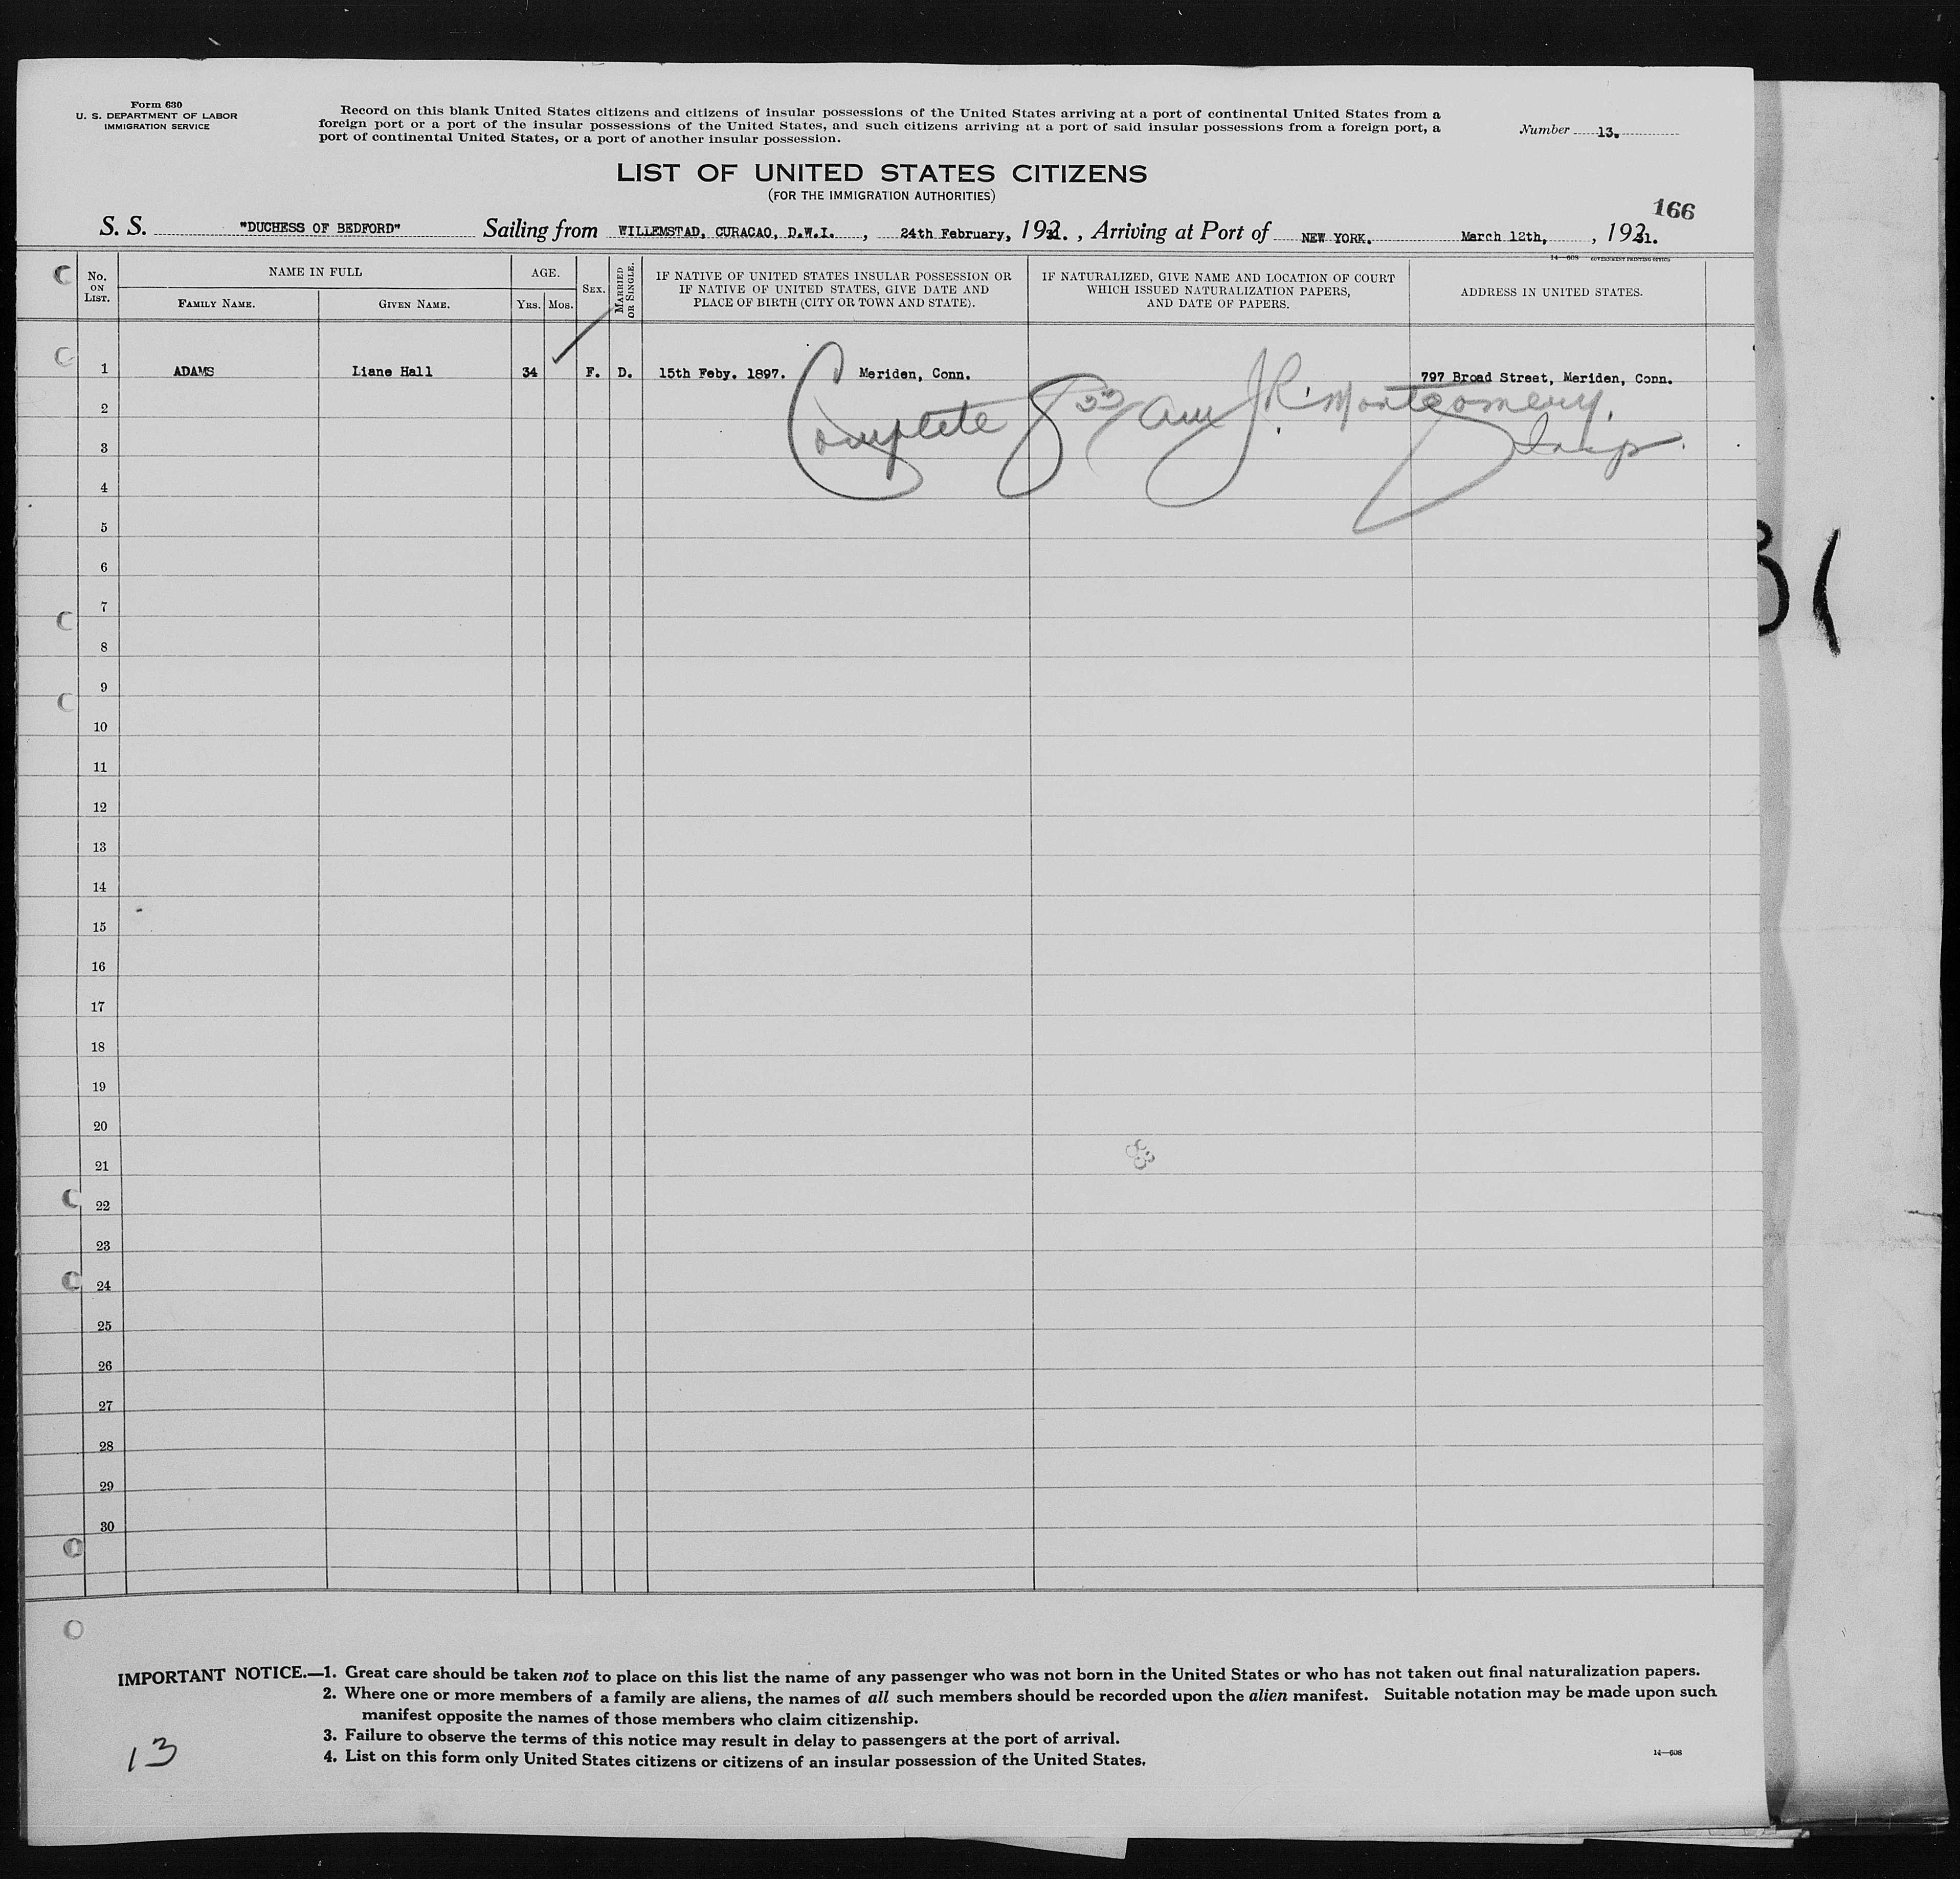 Form 630
U. S. DEPARTMENT OF LABOR
IMMIGRATION SERVICE
Record on this blank United States citizens and citizens of insular possessions of the United States arriving at a port of continental United States from a
foreign port or a port of the insular possessions of the United States, and such citizens arriving at a port of said insular possessions from a foreign port, a
port of continental United States, or a port of another insular possession.
Number 13.
LIST OF UNITED STATES CITIZENS
(FOR THE IMMIGRATION AUTHORITIES)
166
S. S. "DUCHESS OF BEDFORD" Sailing from WILLEMSTAD, CURACAO, D.W.I. , 24th February, 1931. , Arriving at Port of NEW YORK. March 12th, , 1931.
14—608 GOVERNMENT PRINTING OFFICE
No. ON LIST.
NAME IN FULL
FAMILY NAME.
GIVEN NAME.
AGE.
YRS.
MOS.
SEX.
MARRIED OR SINGLE.
IF NATIVE OF UNITED STATES INSULAR POSSESSION OR
IF NATIVE OF UNITED STATES, GIVE DATE AND
PLACE OF BIRTH (CITY OR TOWN AND STATE).
IF NATURALIZED, GIVE NAME AND LOCATION OF COURT
WHICH ISSUED NATURALIZATION PAPERS,
AND DATE OF PAPERS.
ADDRESS IN UNITED STATES.
1 ADAMS Liane Hall 34 F. D. 15th Feby. 1897. Meriden, Conn. 797 Broad Street, Meriden, Conn.
Complete 8 55/ am J.R. Montgomery.
Insp.
2
3
4
5
6
7
8
9
10
11
12
13
14
15
16
17
18
19
20
21
22
23
24
25
26
27
28
29
30
IMPORTANT NOTICE.—1. Great care should be taken not to place on this list the name of any passenger who was not born in the United States or who has not taken out final naturalization papers.
2. Where one or more members of a family are aliens, the names of all such members should be recorded upon the alien manifest. Suitable notation may be made upon such
manifest opposite the names of those members who claim citizenship.
3. Failure to observe the terms of this notice may result in delay to passengers at the port of arrival.
4. List on this form only United States citizens or citizens of an insular possession of the United States.
14—608
13